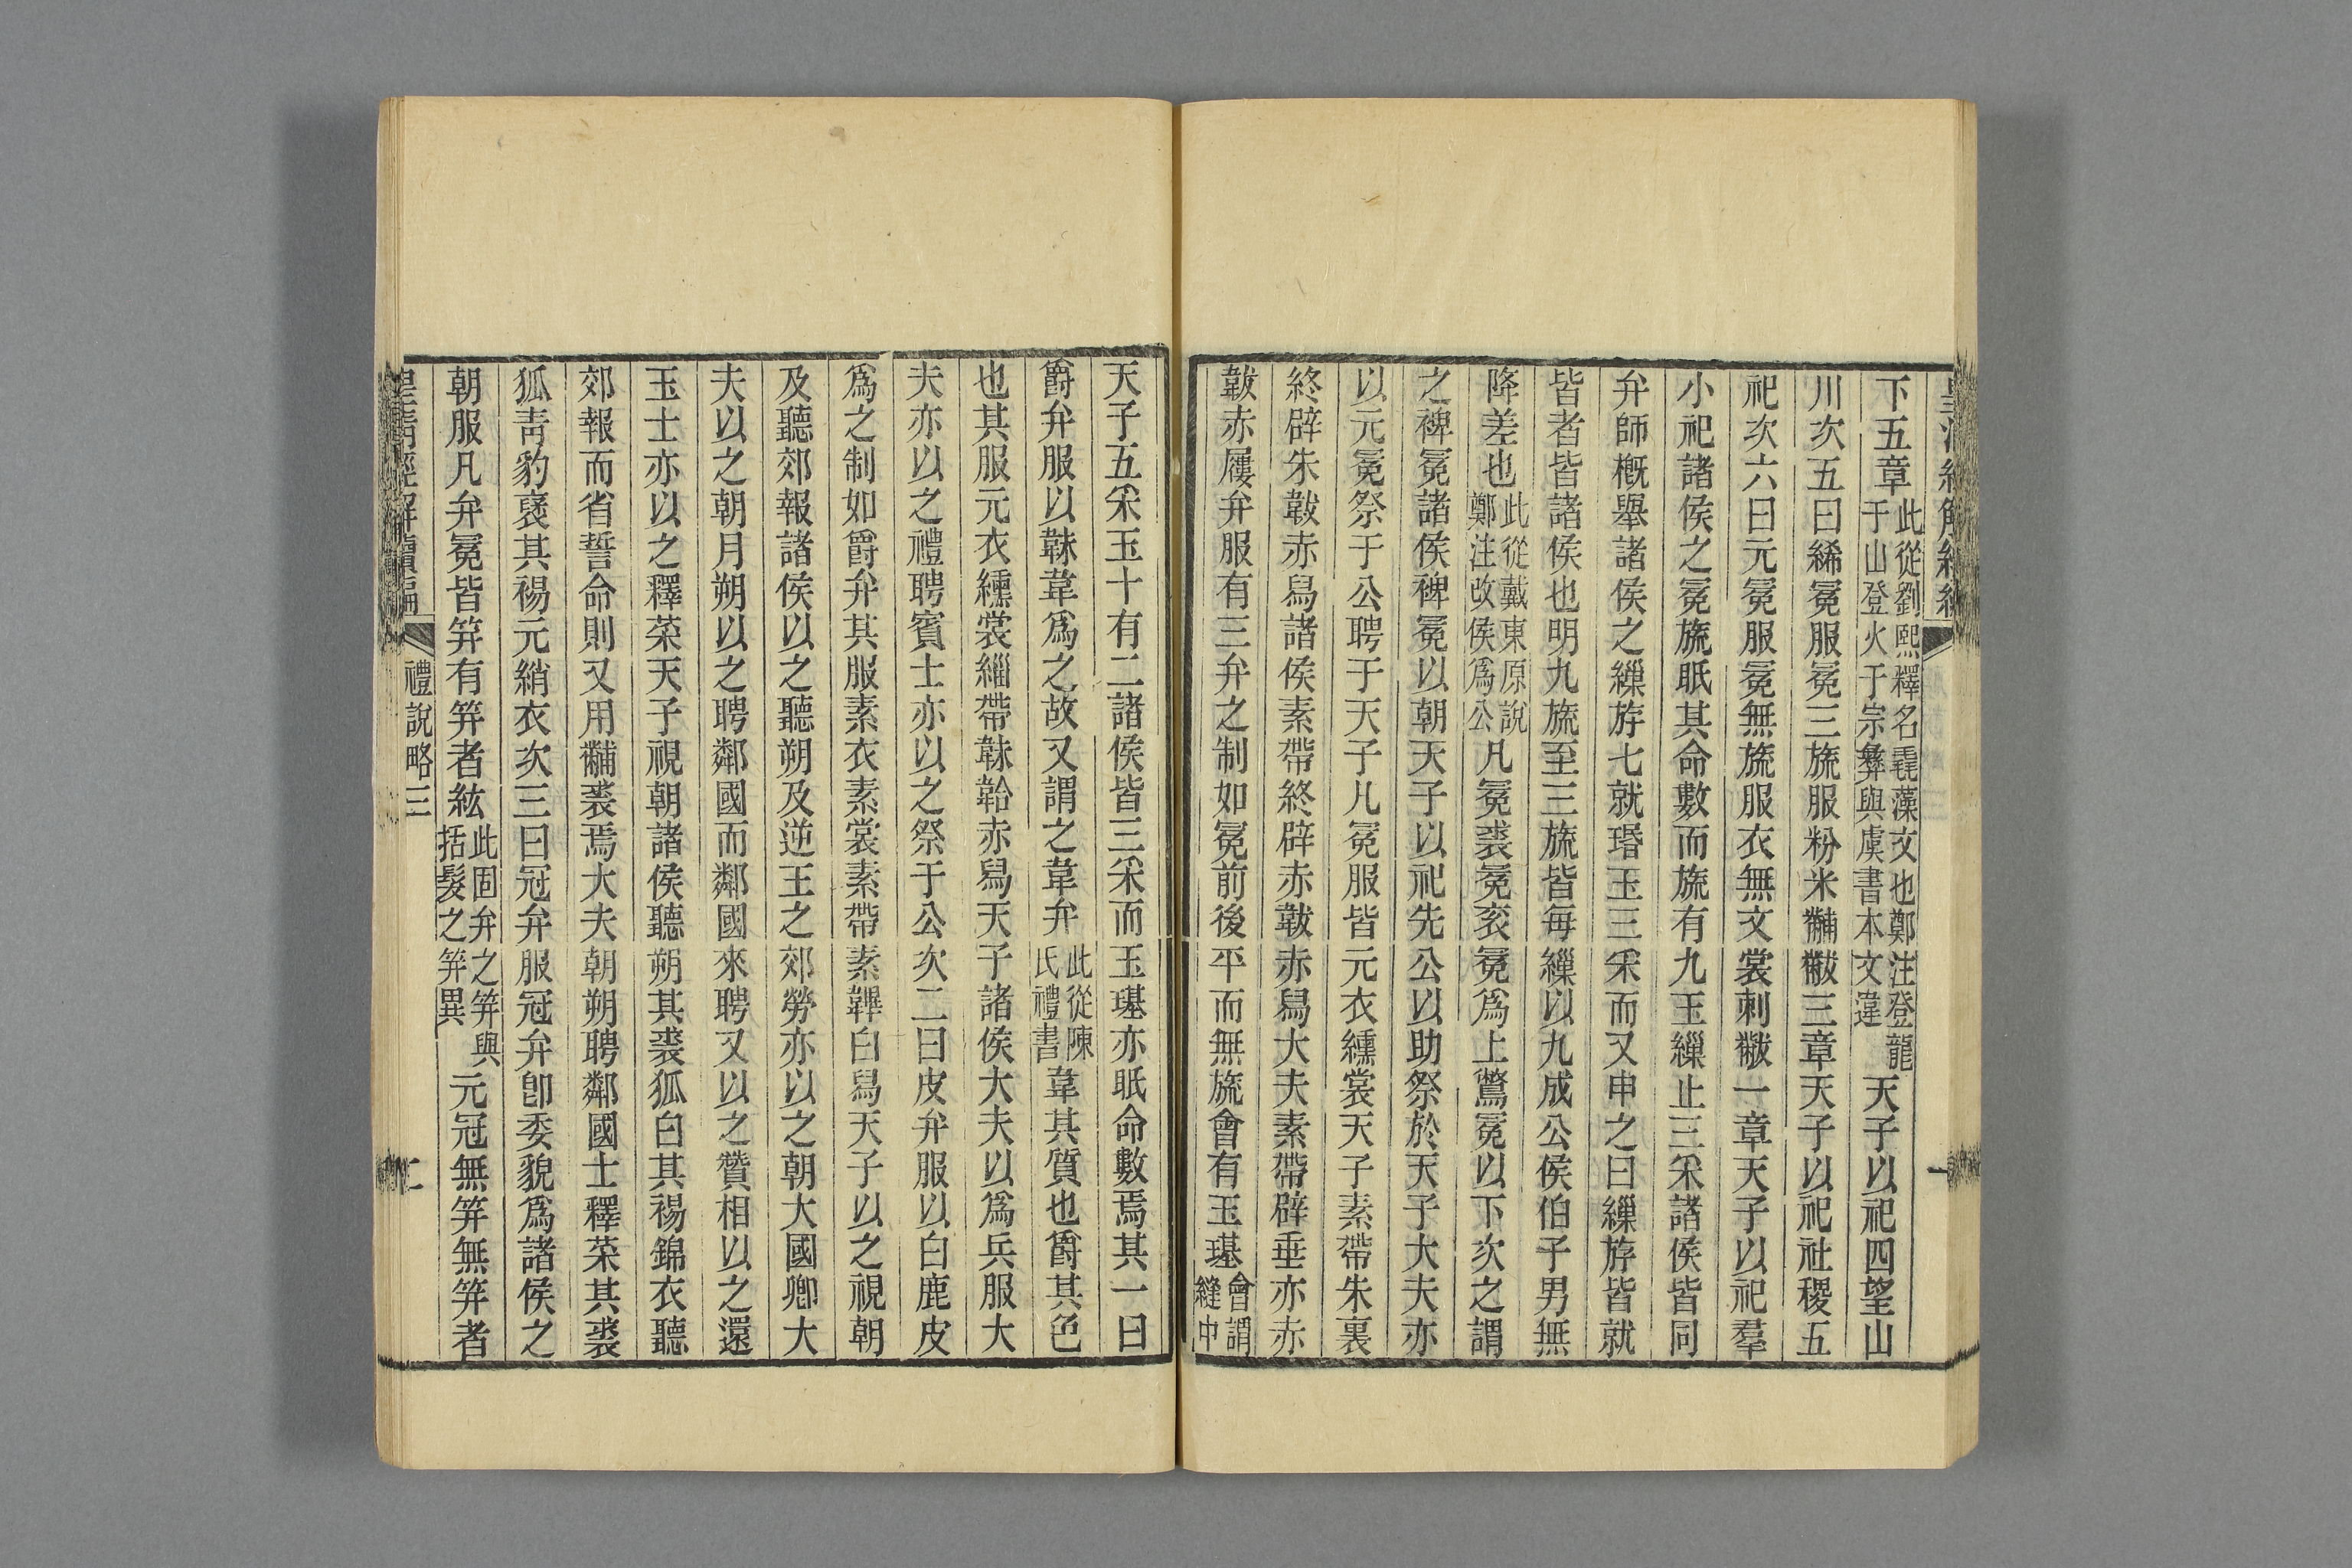 下五章此從劉熙釋名毳藻文也鄭注登龍于山登火于宗彝與虞書本文違天子以祀四望山
川次五曰絺冕服冕三旒服粉米黼黻三章天子以祀社稷五
祀次六曰元冕服冕無旒服衣無文裳刺黻一章天子以祀羣
小祀諸侯之冕旒眡其命數而旒有九玉繅止三釆諸侯皆同
弁師槪舉諸侯之繅斿七就瑉玉三釆而又申之曰繅斿皆就
皆者皆諸侯也明九旒至三旒皆每繅以九成公侯伯子男無
降差也此從戴東原說鄭注改侯爲公凡冕裘冕衮冕爲上鷩冕以下次之謂
之裨冕諸侯裨冕以朝天子以祀先公以助祭於天子大夫亦
以元冕祭于公聘于天子凡冕服皆元衣纁裳天子素帶朱裏
終辟朱韍赤舄諸侯素帶終辟赤韍赤舄大夫素帶辟垂亦赤
韍赤屨弁服有三弁之制如冕前後平而無旒會有玉璂會謂縫中
天子五釆玉十有二諸侯皆三釆而玉璂亦眡命數焉其一曰
爵弁服以韎韋爲之故又謂之韋弁此從陳氏禮書韋其質也爵其色
也其服元衣纁裳緇帶韎韐赤舄天子諸侯大夫以爲兵服大
夫亦以之禮聘賓士亦以之祭于公次二曰皮弁服以白鹿皮
爲之制如爵弁其服素衣素裳素帶素韠白舄天子以之視朝
及聽郊報諸侯以之聽朔及逆王之郊勞亦以之朝大國卿大
夫以之朝月朔以之聘鄰國而鄰國來聘又以之贊相以之還
玉士亦以之釋菜天子視朝諸侯聽朔其裘狐白其裼錦衣聽
郊報而省誓命則又用黼裘焉大夫朝朔聘鄰國士釋菜其裘
狐靑豹褎其裼元綃衣次三曰冠弁服冠弁卽委貌爲諸侯之
朝服凡弁冕皆笄有笄者紘此固弁之笄與括髮之笄異元冠無笄無笄者
皇淸經解續編
禮說略三
二